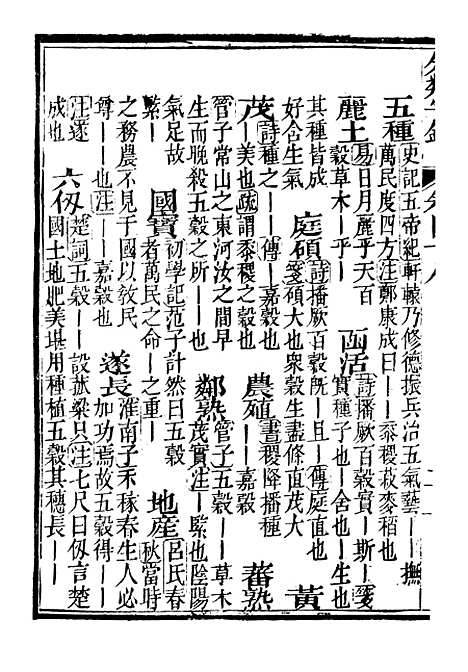 五種 史記五帝紀軒轅乃修德振兵治五氣藝——撫
萬民度四方注鄭康成曰——黍稷菽麥稻也
麗土 易日月麗乎天百
穀草木—乎— 函活 詩播厥百穀實—斯—箋
實種子也—含也—生也
其種皆成
好含生氣 庭碩 詩播厥百穀既—且—傳庭直也
箋碩大也衆穀生盡條直茂大 黃
茂 詩種之——傳—嘉穀也
—美也疏謂黍稷之穀也 農殖 書稷降播種
——嘉穀 蕃熟
管子常山之東河汝之間早
生而晚殺五穀之所——也 鄰熟 管子五穀——草木
茂實注—緊也陰陽
氣足故
緊— 國寶 初學記范子計然曰五穀
者萬民之命—之重— 地產 呂氏春
秋當時
之務農不見于國以敎民
尊——也注——嘉穀也 遂長 淮南子禾稼春生人必
加功焉故五穀得——
注遂
成也 六仭 楚詞五穀——設菰粱只注七尺曰仭言楚
國土地肥美堪用種植五穀其穗長——